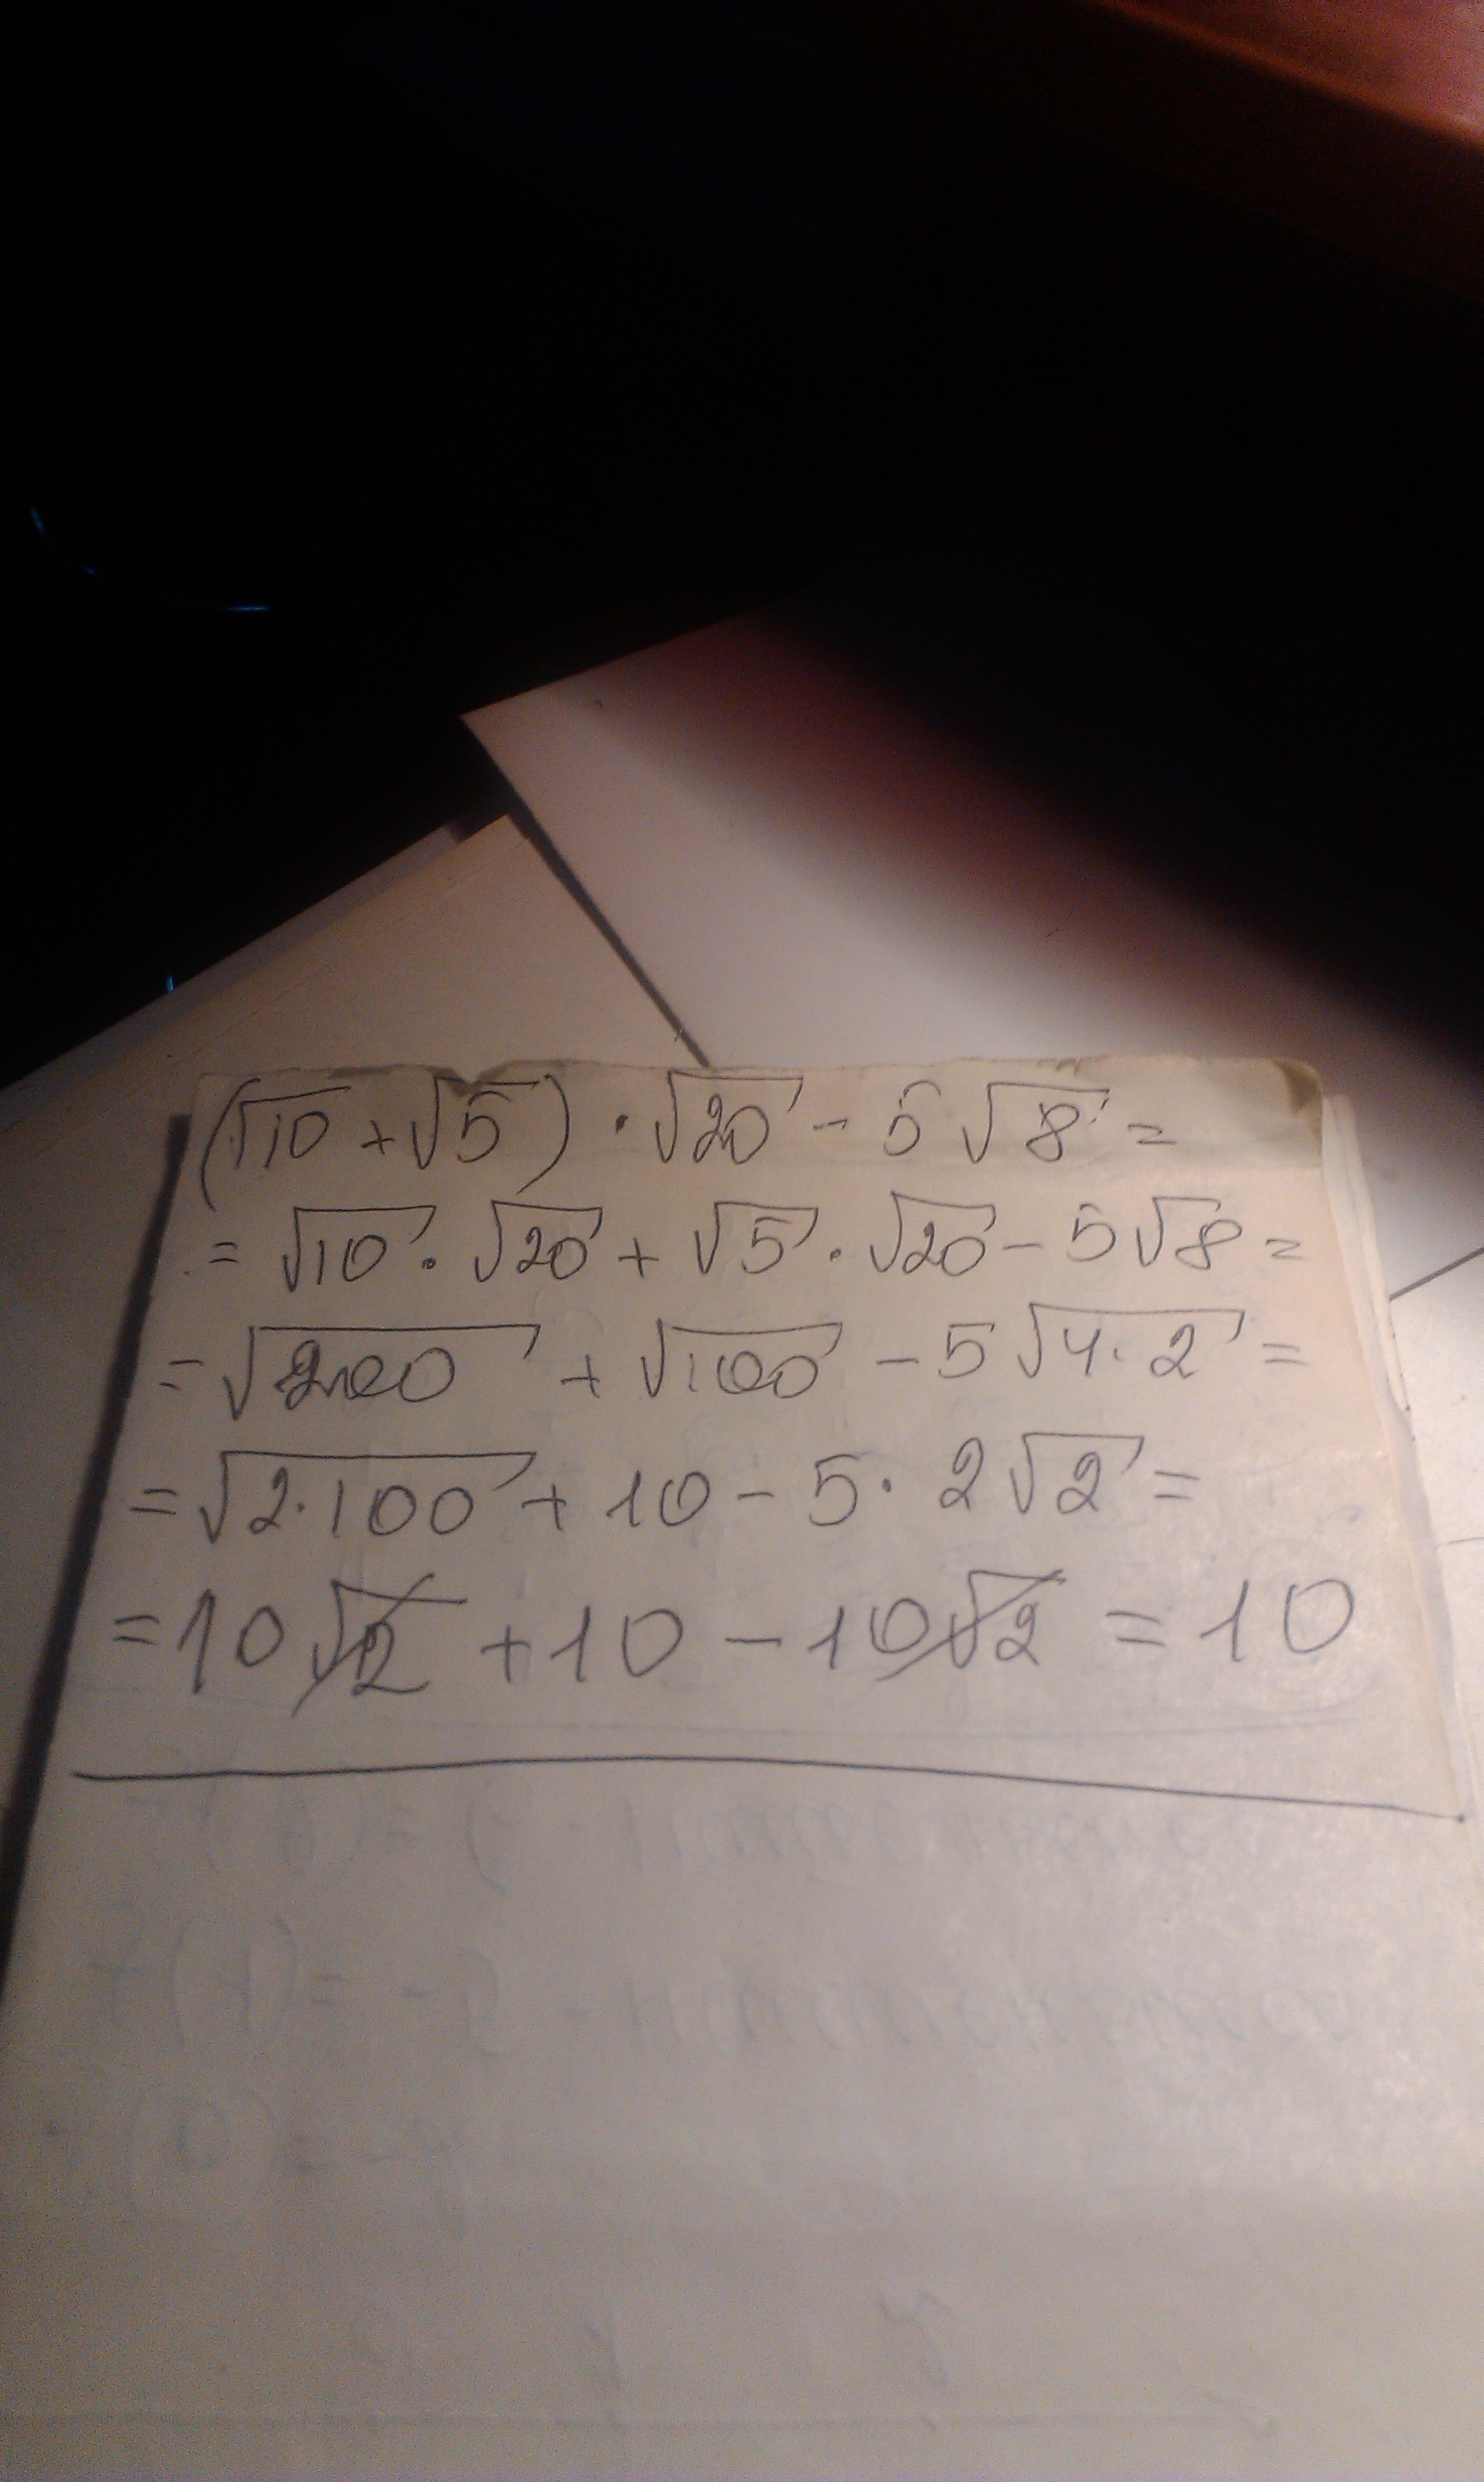 (√10 + √5) · √20 - 5 √8 =
= √10 · √20 + √5 · √20 - 5√8 =
= √200 + √100 - 5 √4·2 =
= √2·100 + 10 - 5 · 2 √2 =
= 10 √2 + 10 - 10√2 = 10